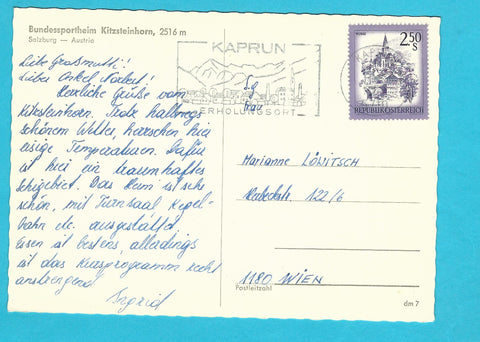 Bundessportheim Kitzsteinhorn, 2516 m
Salzburg — Austria
Liebe Großmutti!
Lieber Onkel Norbert!
Herzliche Grüße vom
Kitzsteinhorn. Trotz halbwegs
schönem Wetter, herrschen hier
eisige Temperaturen. Dafür
ist hier ein traumhaftes
Schigebiet. Das Heim ist sehr
schön, mit Turnsaal Kegel-
bahn etc. ausgestattet,
Essen ist bestens, allerdings
ist das Kursprogramm recht
anstrengend
Ingrid
KAPRUN
ERHOLUNGSORT
Fg
Frau
2.50
S
REPUBLIK ÖSTERREICH
Marianne LÖWITSCH
122/6
1180 WIEN
Postleitzahl
dm 7